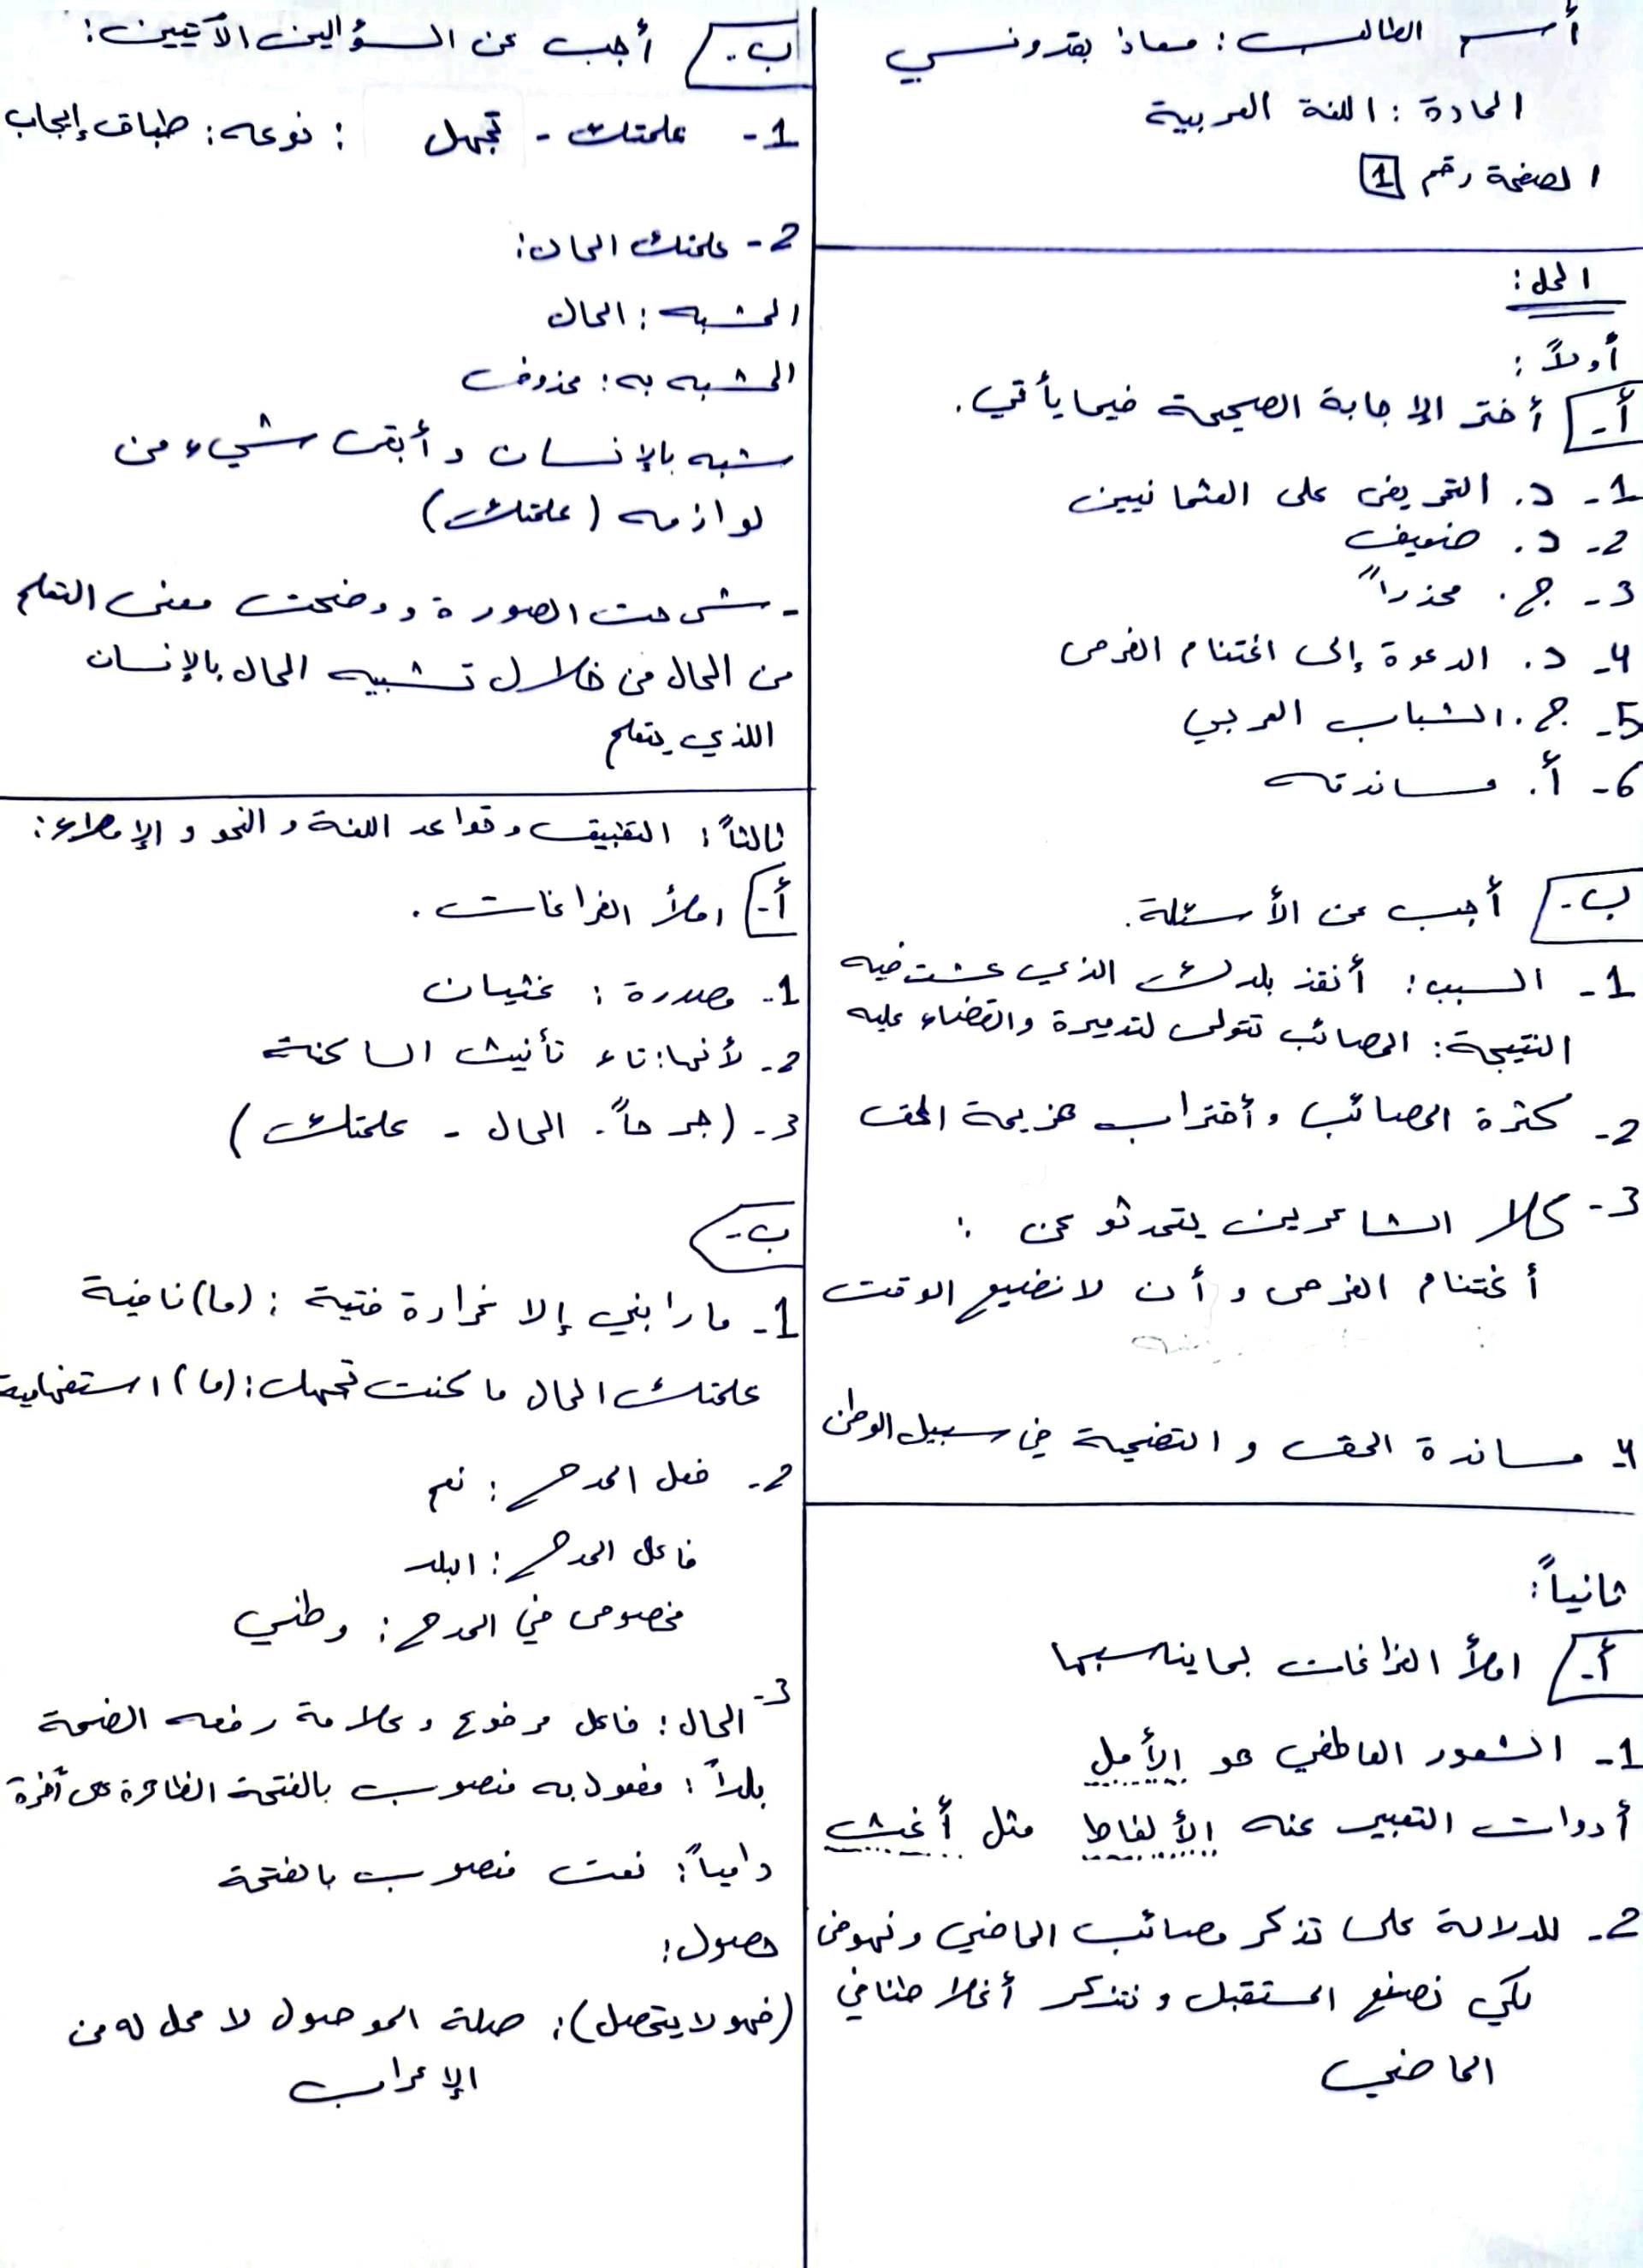 أسم الطالب: معاذ بقدونسي
المادة: اللغة العربية
الصفحة رقم 1
الحل:
أولاً:
أ- أختر الإجابة الصحيحة فيما يأتي.
1- د. التحريض على العثمانيين
2- د. ضعيف
3- ج. محذراً
4- د. الدعوة إلى اغتنام الفرص
5- ج. الشباب العربي
6- أ. مساندته
ب- أجب عن الأسئلة.
1- السبب: أنقذ بلدك الذي عشت فيه
النتيجة: المصائب تتولى لتدميرة والقضاء عليه
2- كثرة المصائب وأقتراب هزيمة الحق
3- كلا الشاعرين يتحدثو عن:
أغتنام الفرص وأن لا نضيع الوقت
4- مساندة الحق و التضحية في سبيل الوطن
ثانياً:
أ- املأ الفراغات بما يناسبها
1- الشعور العاطفي هو الأمل
أدوات التعبير عنه الألفاظ مثل أغث
2- للدلالة على تذكر مصائب الماضي ونهوض
لكي نصنع المستقبل و نتذكر أغلاطنا في
الماضي
ب- أجب عن السؤالين الآتيين:
1- علمتك - تجهل : نوعه: طباق إيجاب
2- علمتك الحال:
المشبه: الحال
المشبه به: محذوف
شبه بالإنسان و أبقى شيء من
لوازمه (علمتك)
- شرحت الصورة ووضحت معنى التعلم
من الحال من خلال تشبيه الحال بالإنسان
اللذي يتعلم
ثالثاً: التطبيق وقواعد اللغة و النحو و الإملاء:
أ- املأ الفراغات.
1- مصدرة: غثيان
2- لأنها: تاء تأنيث الساكنة
3- (جرحاً - الحال - علمتك)
ب-
1- ما رابني إلا غرارة فتية: (ما) نافية
علمتك الحال ما كنت تجهل: (ما) استفهامية
2- فعل المدح: نعم
فاعل المدح: البلد
مخصوص في المدح: وطني
3- الحال: فاعل مرفوع و علامة رفعه الضمة
بلداً: مفعول به منصوب بالفتحة الظاهرة على آخرة
دامياً: نعت منصوب بالفتحة
(فهو لا يتحصل): صلة الموصول لا محل له من
الإعراب